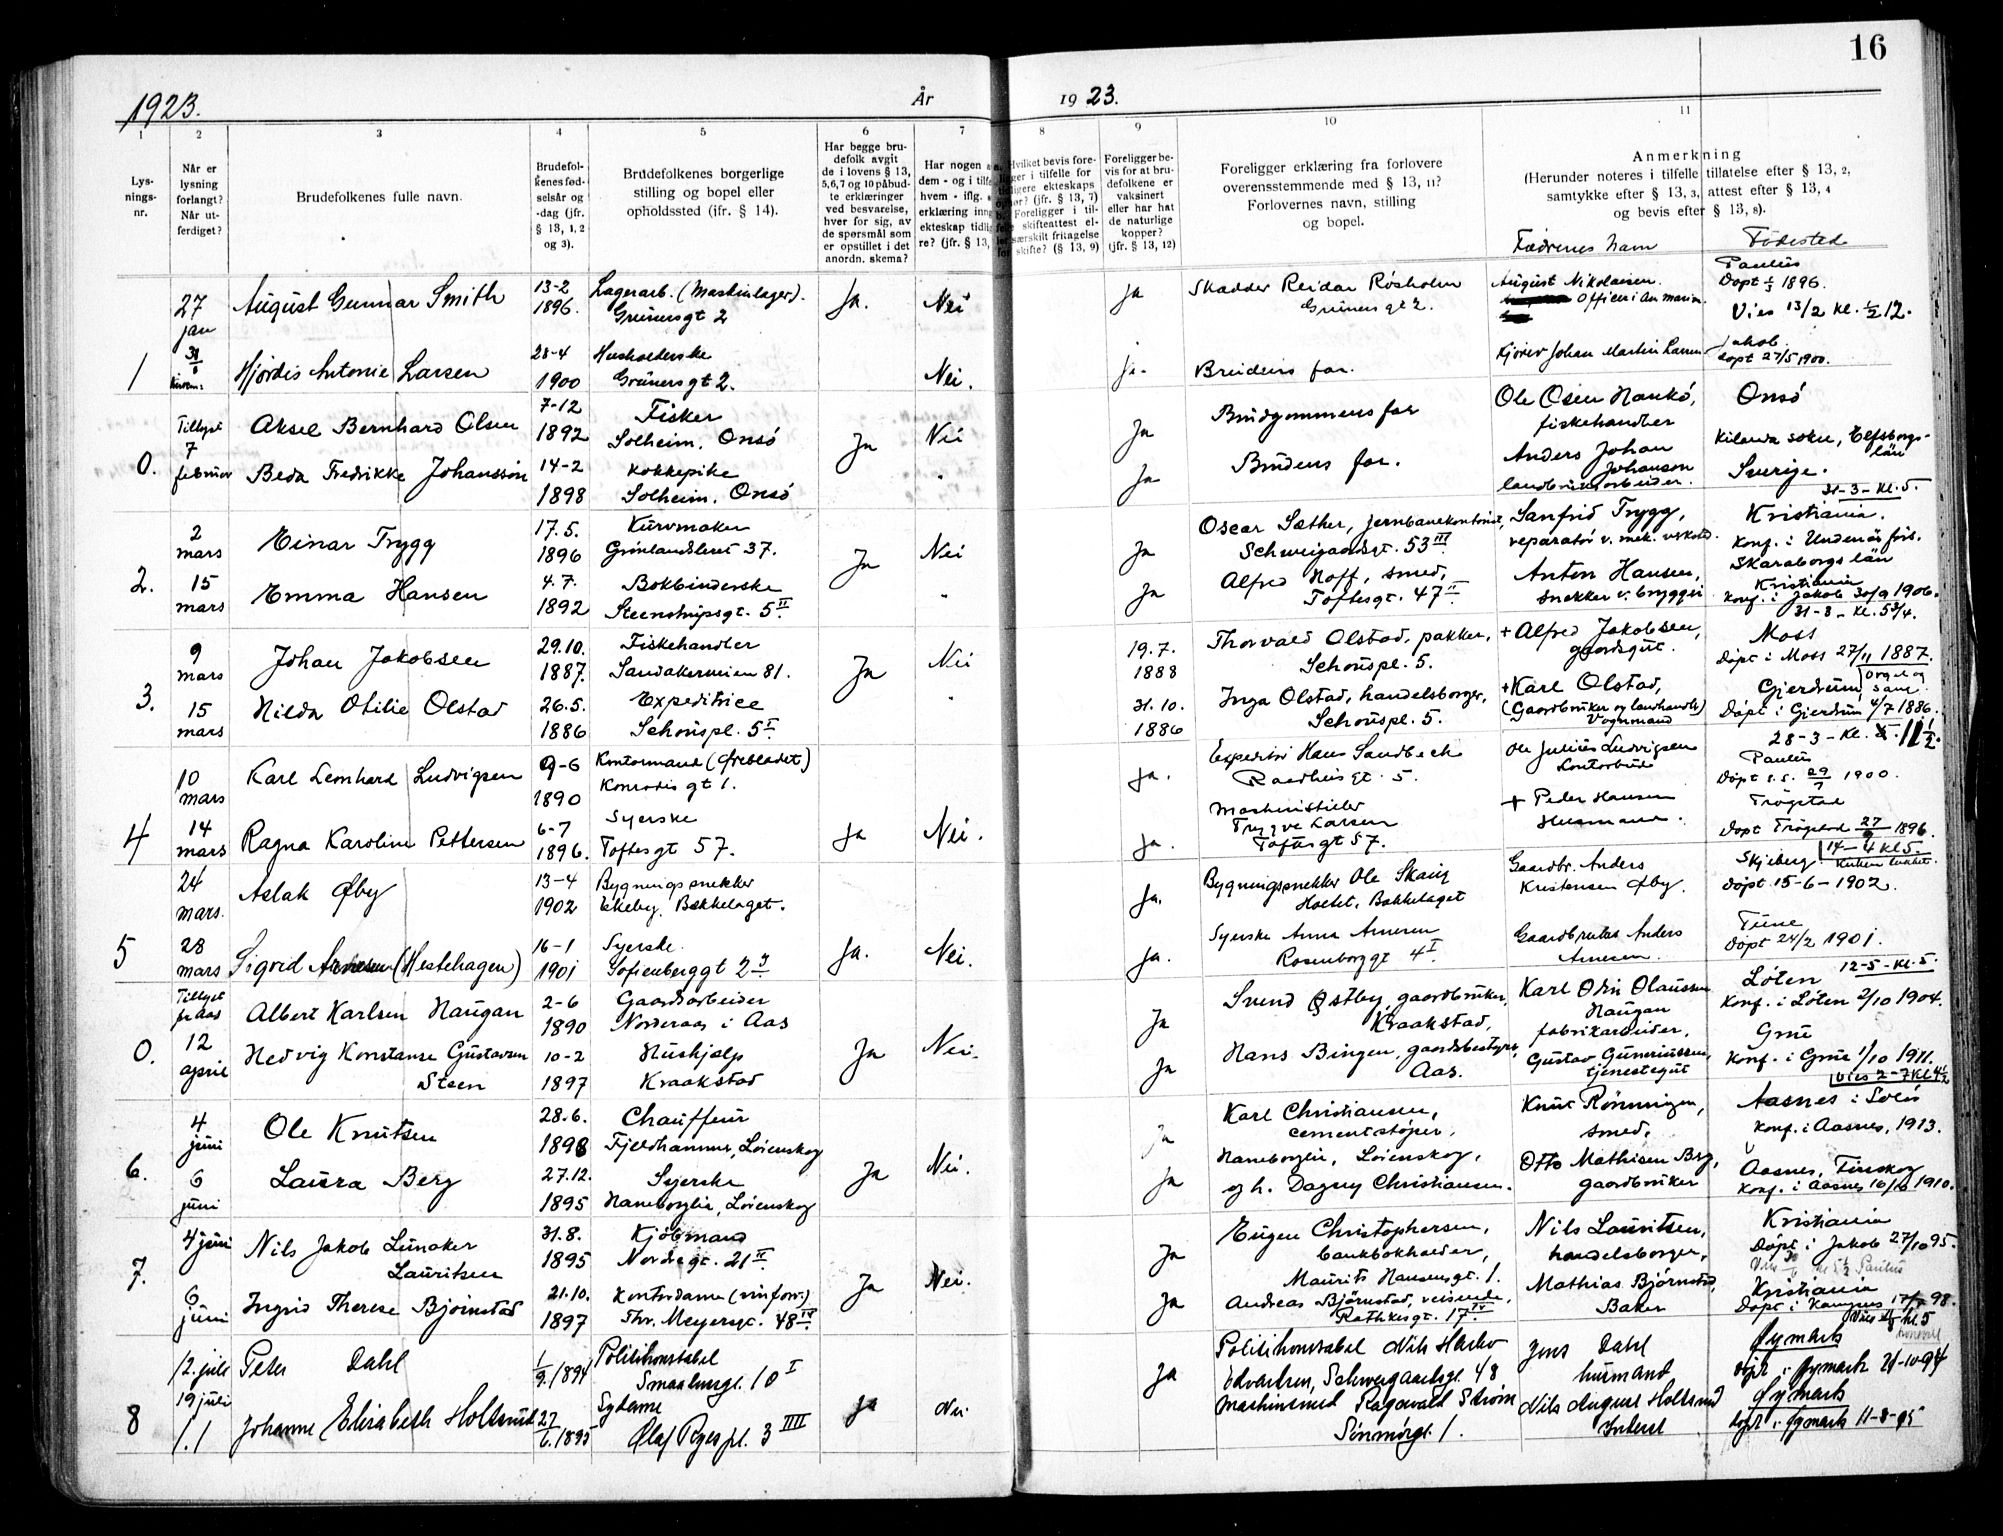 16
1923.
År
19 23.
1
2
3
4
5
6
7
8
9
10
11
Lysningsnr.
Når er lysning forlangt? Når utferdiget?
Brudefolkenes fulle navn.
Brudefolkenes fødselsår og -dag (jfr. § 13, 1, 2 og 3).
Brudefolkenes borgerlige stilling og bopel eller opholdssted (jfr. § 14).
Har begge brudefolk avgit de i lovens § 13, 5, 6, 7 og 10 påbudte erklæringer ved besvarelse, hver for sig, av de spørsmål som er opstillet i det anordn. skema?
Har nogen a
dem - og i tilfe
hvem - iflg.
erklæring inng
ekteskap tidlig
re? (jfr. § 13,
Hvilket bevis fore-
ger i tilfelle for
ligere ekteskaps
ophør? (jfr. § 13, 7)
Foreligger i til-
felle skifteattest el-
særskilt fritagelse
for skifte? (§ 13, 9)
Foreligger bevis for at brudefolkene er vaksinert eller har hat de naturlige kopper? (jfr. § 13, 12)
Foreligger erklæring fra forlovere overensstemmende med § 13, 11? Forlovernes navn, stilling og bopel.
Anmerkning
(Herunder noteres i tilfelle tillatelse efter § 13, 2, samtykke efter § 13, 3, attest efter § 13, 4 og bevis efter § 13, 8).
Fædrenes navn
Fødested
27 jan
August Gunnar Smith
13-2 1896.
Lagerarb. (Maskinlager).
Grünersgt 2
Ja.
Nei
Ja
Skredder Reidar Røsholm
Grünersgt 2.
August Nikolaisen.
Officer i Am marin
Paulus
Døpt 1/3 1896.
Vies 13/2 kl. ½ 12.
1
31/1
Hjørdis Antonie Larsen
28-4 1900
Husholderske
Grünersgt 2.
Nei.
Ja.
Brudens far.
Kjører Johan Martin Larsen
Jakob
døpt 27/5 1900.
Tillyst
7
februar
0.
Aksel Bernhard Olsen
7-12 1892
Fisker
Solheim, Onsø
Ja
Nei
Ja
Brudgommens far
Ole Olsen Hankø,
fiskehandler
Onsø
Beda Fredrikke Johansson
14-2 1898
Kokkepike
Solheim, Onsø
"
Ja
Brudens far.
Anders Johan
Johanson
landbruksarbeider.
Kilanda sokn, Elfsborgs-
län
Sverige.
31-3-kl.5.
2 mars
2.
Einar Trygg
17.5. 1896
Kurvmaker
Grønlandsleret 37.
Ja
Nei
Ja
Oscar Sæther, jernbanekontorist,
Schweigaardsgt. 53 III
Sanfrid Trygg,
reparatør v. mek. verksted.
Kristiania.
Konf. i Undenäs förs.
Skaraborgs län
15 mars
Emma Hansen
4.7. 1892
Bokbinderske
Steenstrupsgt. 5 II
"
Ja
Alfred Hoff, smed,
Toftesgt. 47 II
Anton Hansen,
snekker v. bryggeri
Kristiania
Konf. i Jakob 30/9 1906.
31-3-kl. 5¾.
9 mars
3.
Johan Jakobsen
29.10. 1887.
Fiskehandler
Sandakerveien 81.
Ja
Nei
19.7. 1888
Thorvald Olstad, pakker,
Schouspl. 5.
+ Alfred Jakobsen,
gaardsgut.
Moss
Døpt i Moss 27/11 1887.
15 mars
Hilda Otilie Olstad
26.5. 1886
Expeditrice
Schouspl. 5 I
"
31.10. 1886
Inga Olstad, handelsborger,
Schouspl. 5.
+ Karl Olstad,
(Gaardbruker og landhandler)
Vognmand
Gjerdrum
Orgel og sang
Døpt i Gjerdrum 4/7 1886.
28-3-kl. 11½.
10 mars
4
Karl Leonhard Ludvigsen
9-6 1890
Kontormand (Ørebladet)
Konradis gt 1.
Ja
Nei.
Ja.
Expeditør Hans Sandbeck
Raadhusgt. 5.
Ole Julius Ludvigsen
Kontorbud
Paulus
Døpt s.s. 29/7 1900.
14 mars
Ragna Karoline Pettersen
6-7 1896.
Syerske
Toftesgt 57.
Ja.
Maskinstiller
Trygve Larsen
Toftesgt 57.
+ Peder Hansen
Husmann.
Trøgstad
Døpt Trøgstad 27/9 1896.
14-4 kl 5.
Kirken lukket.
24 mars.
5
Aslak Øby
13-4 1902
Bygningssnekker
Ekeby, Bekkelaget.
Ja.
Nei.
Ja.
Bygningssnekker Ole Skaug
Holtet, Bekkelaget
Gaardbr. Anders
Kristensen Øby.
Skjeberg
døpt 15-6-1902.
28 mars
Sigrid Arnesen (Hestehagen)
16-1 1901
Syerske.
Sofienberggt 2
Ja.
Syerske Anna Arnesen
Rosenborggt 4 I
Gaardbruker Anders
Arnesen.
Tune
døpt 24/2 1901.
12-5-kl.5.
Tillyst
fr Aas
12 april
0.
Albert Karlsen Haugan
2-6 1890
Gaardsarbeider
Norderaas i Aas
Ja
Nei.
Ja
Svend Østby, gaardbruker,
Kraakstad,
Karl Odin Olaussen
Haugan
fabrikarbeider,
Løten
Konf. i Løten 2/10 1904.
Hedvig Konstanse Gustavsen
Steen
10-2 1897
Hushjælp
Kraakstad
Ja
Hans Bingen, gaardsbestyrer,
Aas.
Gustav Guneriussen,
tjenestegut
Grue
Konf. i Grue 1/10 1911.
Vies 2-7 kl 4½
4 juni
6.
Ole Knutsen
28.6. 1898
Chauffeur
Fjeldhammer, Lørenskog
Ja
Nei.
Ja
Karl Christiansen,
cementstøper,
Haneborglia, Lørenskog,
Knut Rønningen,
smed,
Aasnes i Solør
Konf. i Aasnes, 1913.
6 juni
Laura Berg
27.12. 1895
Syerske
Haneborglia, Lørenskog
Ja
og h. Dagny Christiansen.
Otto Mathisen Berg,
gaardbruker
Aasnes, Finskog
Konf. i Aasnes 16/10 1910.
4 juni
7.
Nils Jakob Lunaker
Lauritsen
31.8. 1895
Kjøbmand
Nordregt. 21 II
Ja
Nei.
Ja
Eugen Christophersen,
bankbokholder,
Maurits Hansensgt. 1.
Nils Lauritsen,
handelsborger,
Kristiania
Døpt i Jakob 27/10 95.
Paulus
6 juni
Ingrid Therese Bjørnstad
21.10. 1897
Kontordame (uinform)
Thv. Meyersgt. 48 IV
Ja
Andreas Bjørnstad, reisende,
Rathkesgt. 17 IV
Mathias Bjørnstad,
Baker
Kristiania
Døpt i Kampens 17/7 98.
kl 5
12. juli
8
Peter Dahl
1/9. 1894
Politikonstabel
Smaalensgt. 10 I
Ja
Nei
Ja
Politikonstabel Nils Harbo
Edvardsen, Schweigaardsgt. 48
Jens Dahl
husmand
Øymark
døpt i Øymark 21-10-94
19 juli
Johanne Elisabeth Holtsrud
27/6. 1895
Sydame
Olaf Ryes pl. 3 IIII
Maskinsmed Ragnvald Strøm
Sønmørgt. 1.
Nils August Holtsrud
Inderst
Øymark
døpt i Øymark 11-8-95